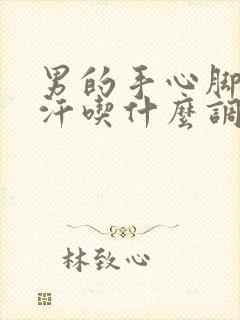 男的手心脚
汗喫什麼調
林致心